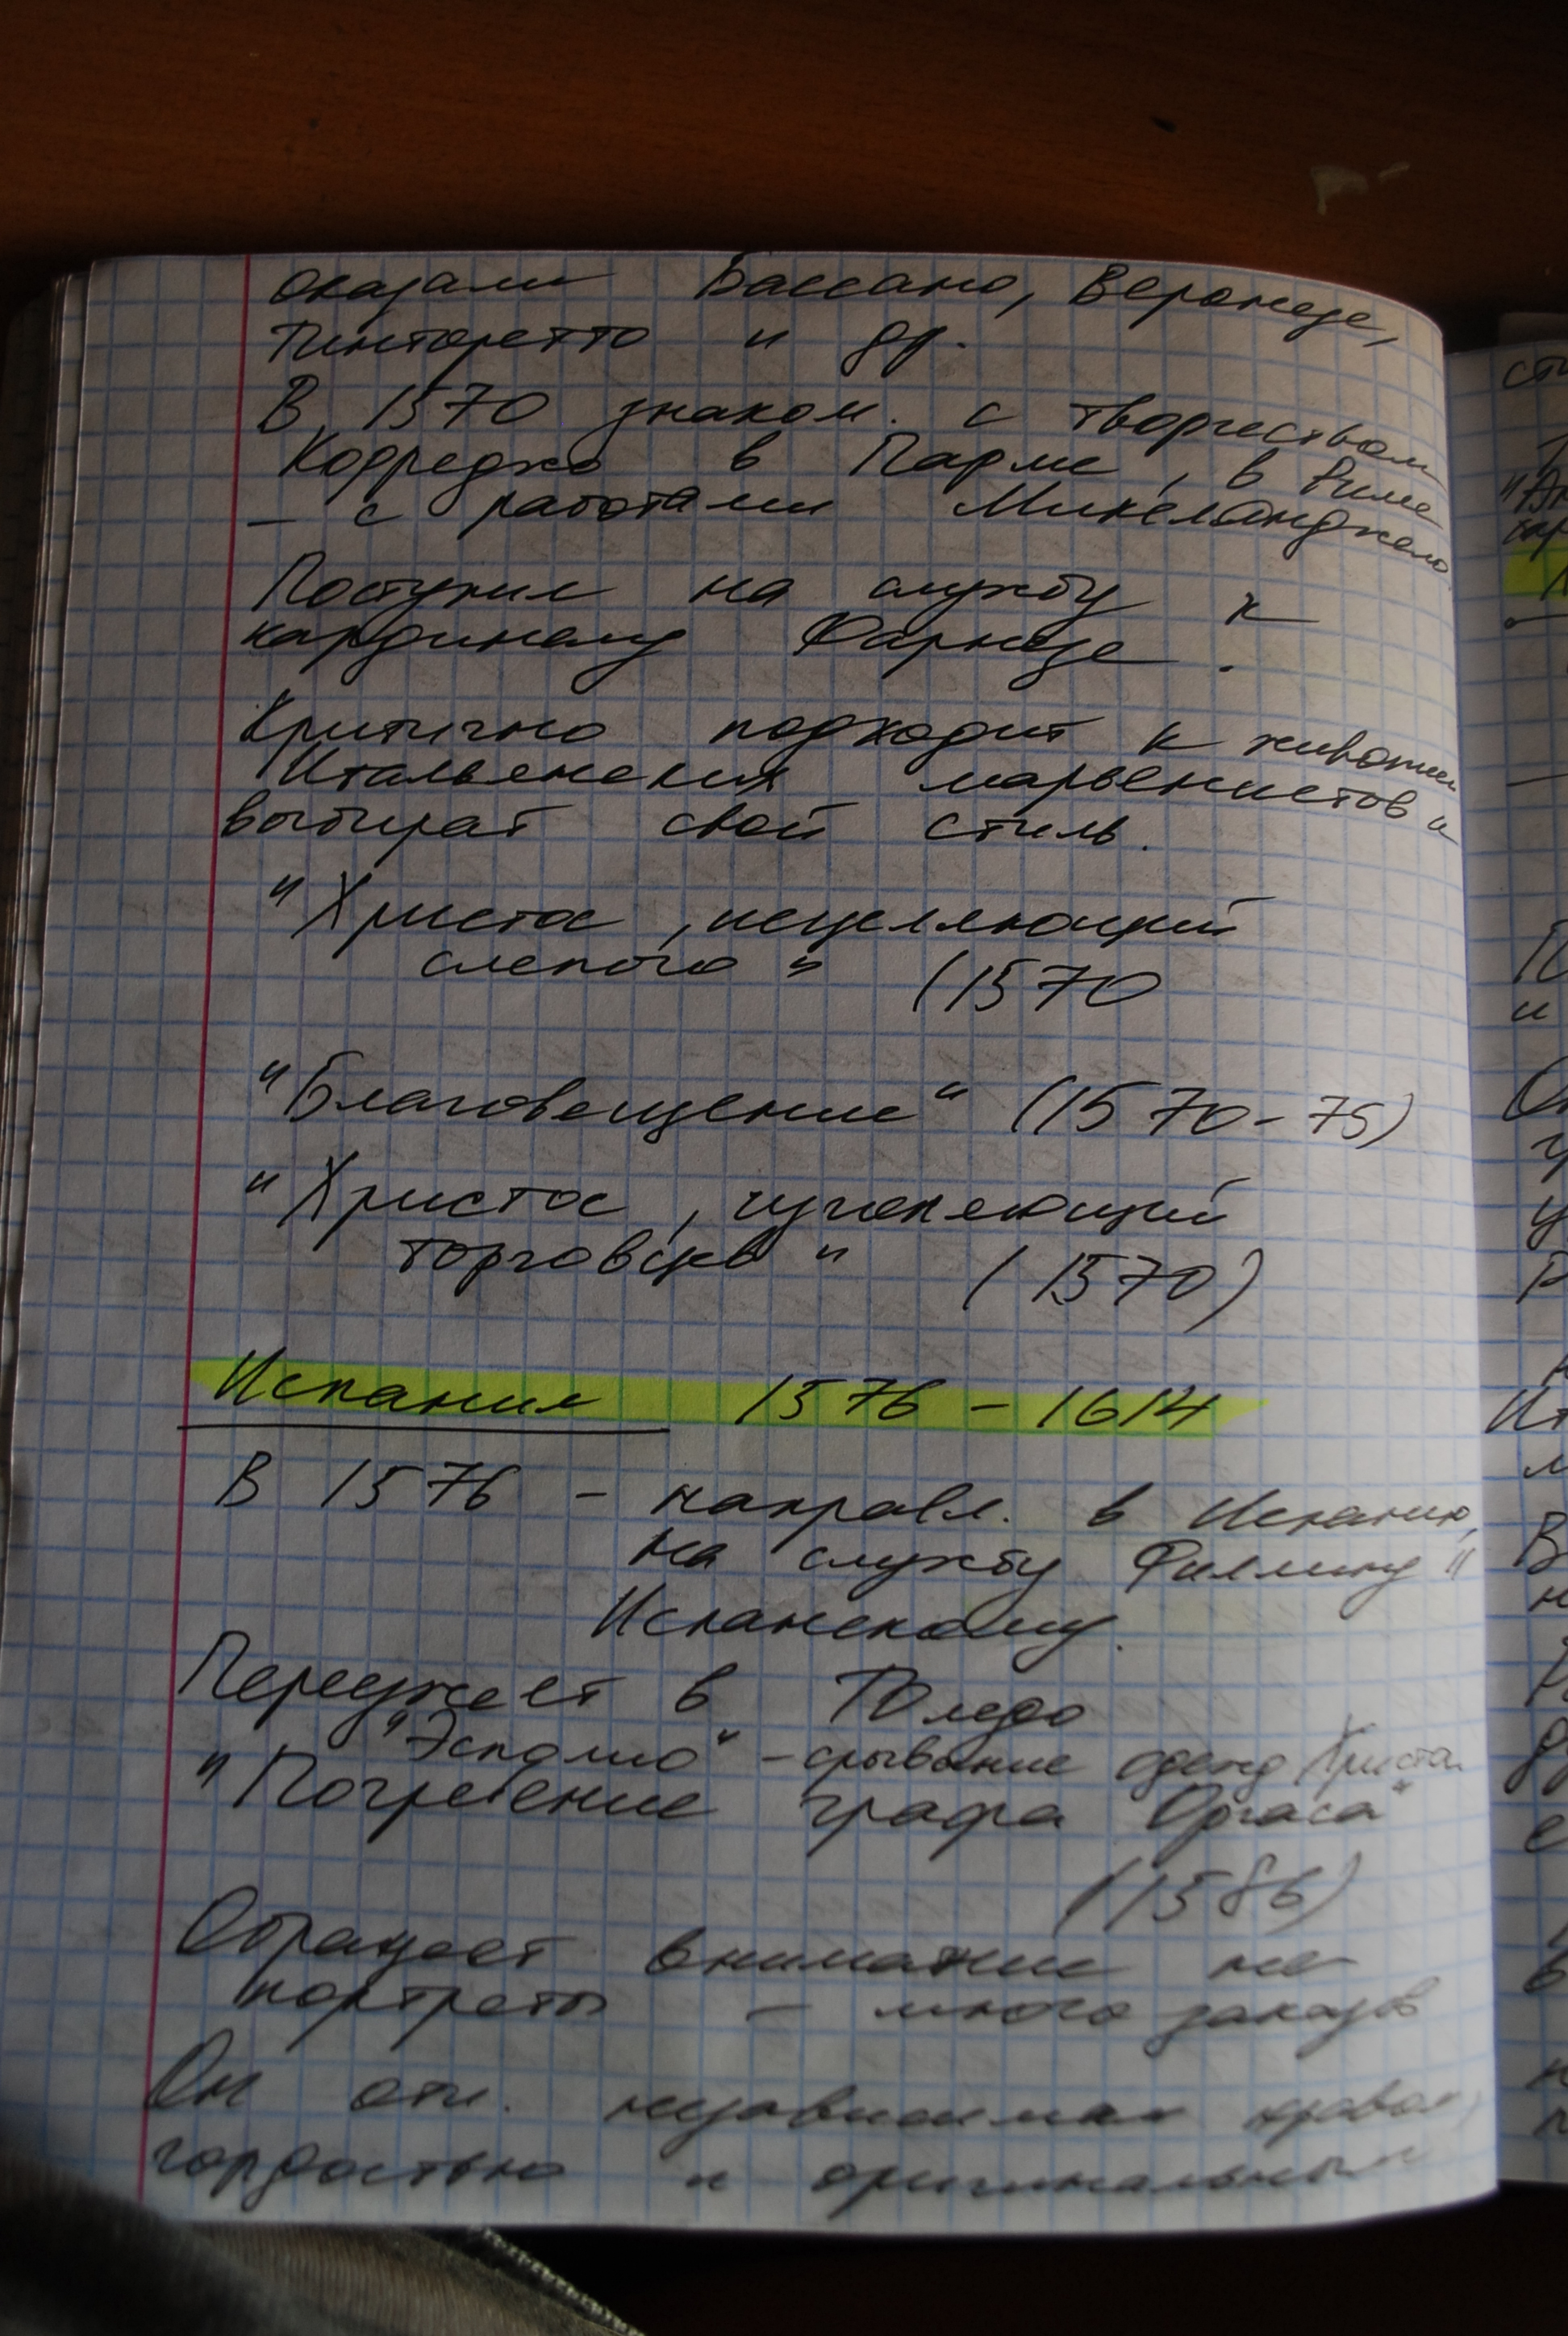 оказали Бассано, Веронезе,
Тинторетто и др.
В 1570 знаком. с творчеством
Корреджо в Парме, в Риме
– с работами Микеланджело
Поступил на службу к
кардиналу Фарнезе.
Критично подходит к живописи
Итальянских маньеристов и
выбирает свой стиль.
"Христос, исцеляющий
слепого" (1570
"Благовещение" (1570-75)
"Христос, изгоняющий
торговцев" (1570)
Испания 1576 – 1614
В 1576 – направл. в Испанию,
на службу Филиппу II
Испанскому.
Переезжает в Толедо
"Эсполио" – срывание одежд Христа.
"Погребение графа Оргаса"
(1586)
Обращает внимание на
портреты – много заказов
Он отл. независимым нравом,
гордостью и оригинальным